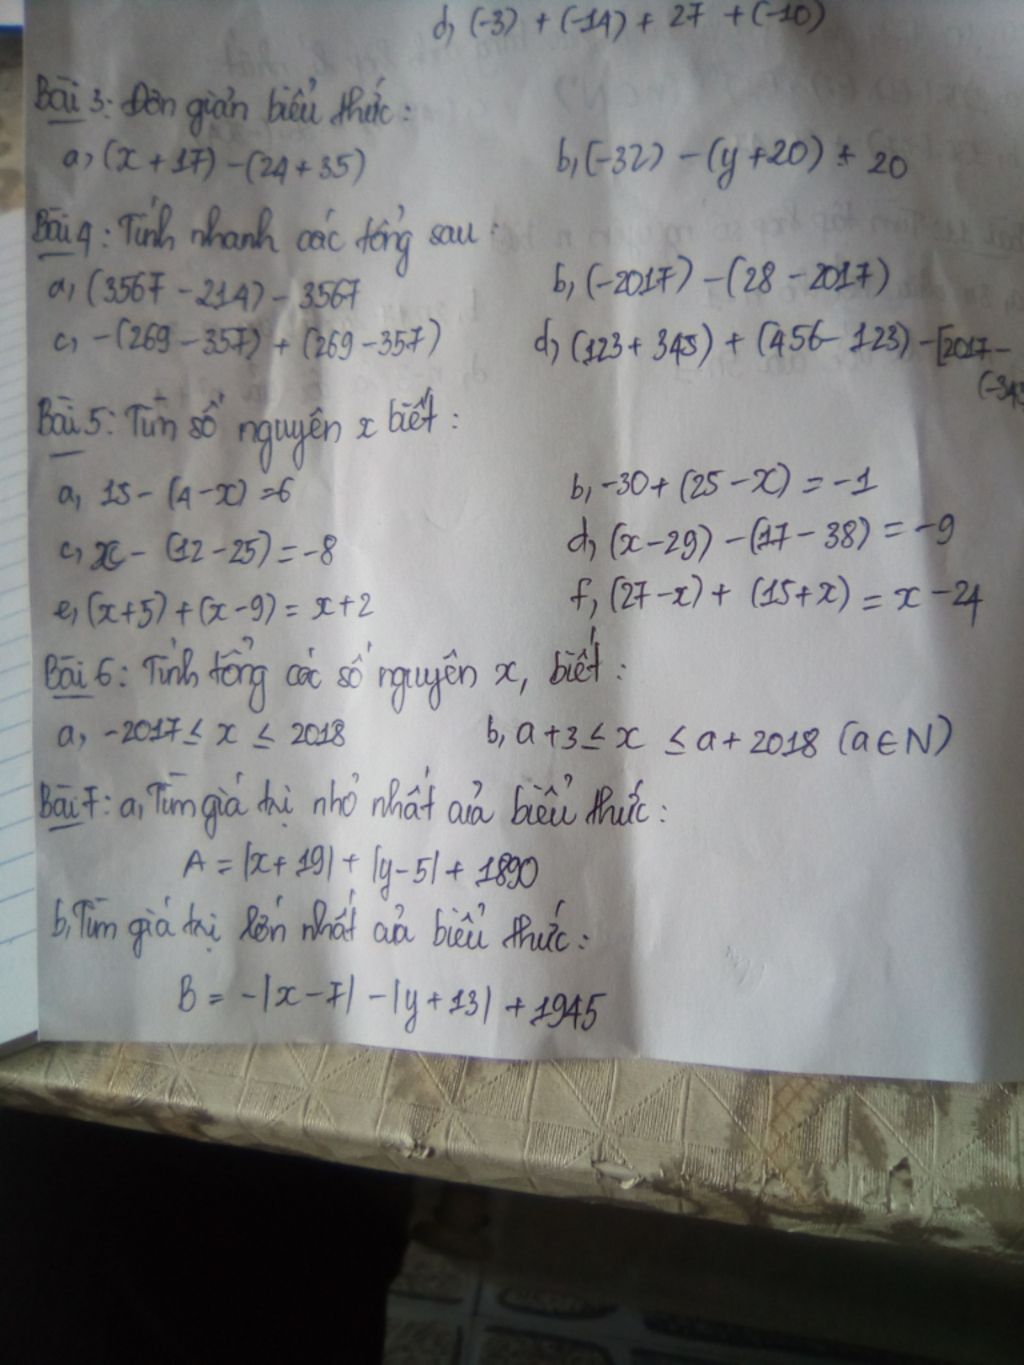 d, (-3) + (-14) + 27 + (-10)
Bài 3: Đơn giản biểu thức:
a, (x + 17) - (24 + 35)
b, (-32) - (y + 20) + 20
Bài 4: Tính nhanh các tổng sau:
a, (3567 - 214) - 3567
b, (-2017) - (28 - 2017)
c, -(269 - 357) + (269 - 357)
d, (123 + 345) + (456 - 123) - [2017 -
(-345
Bài 5: Tìm số nguyên x biết:
a, 15 - (4 - x) = 6
b, -30 + (25 - x) = -1
c, x - (12 - 25) = -8
d, (x - 29) - (17 - 38) = -9
e, (x + 5) + (x - 9) = x + 2
f, (27 - x) + (15 + x) = x - 24
Bài 6: Tính tổng các số nguyên x, biết:
a, -2017 ≤ x ≤ 2018
b, a + 3 ≤ x ≤ a + 2018 (a ∈ N)
Bài 7: a, Tìm giá trị nhỏ nhất của biểu thức:
A = |x + 19| + |y - 5| + 1890
b, Tìm giá trị lớn nhất của biểu thức:
B = -|x - 7| - |y + 13| + 1945